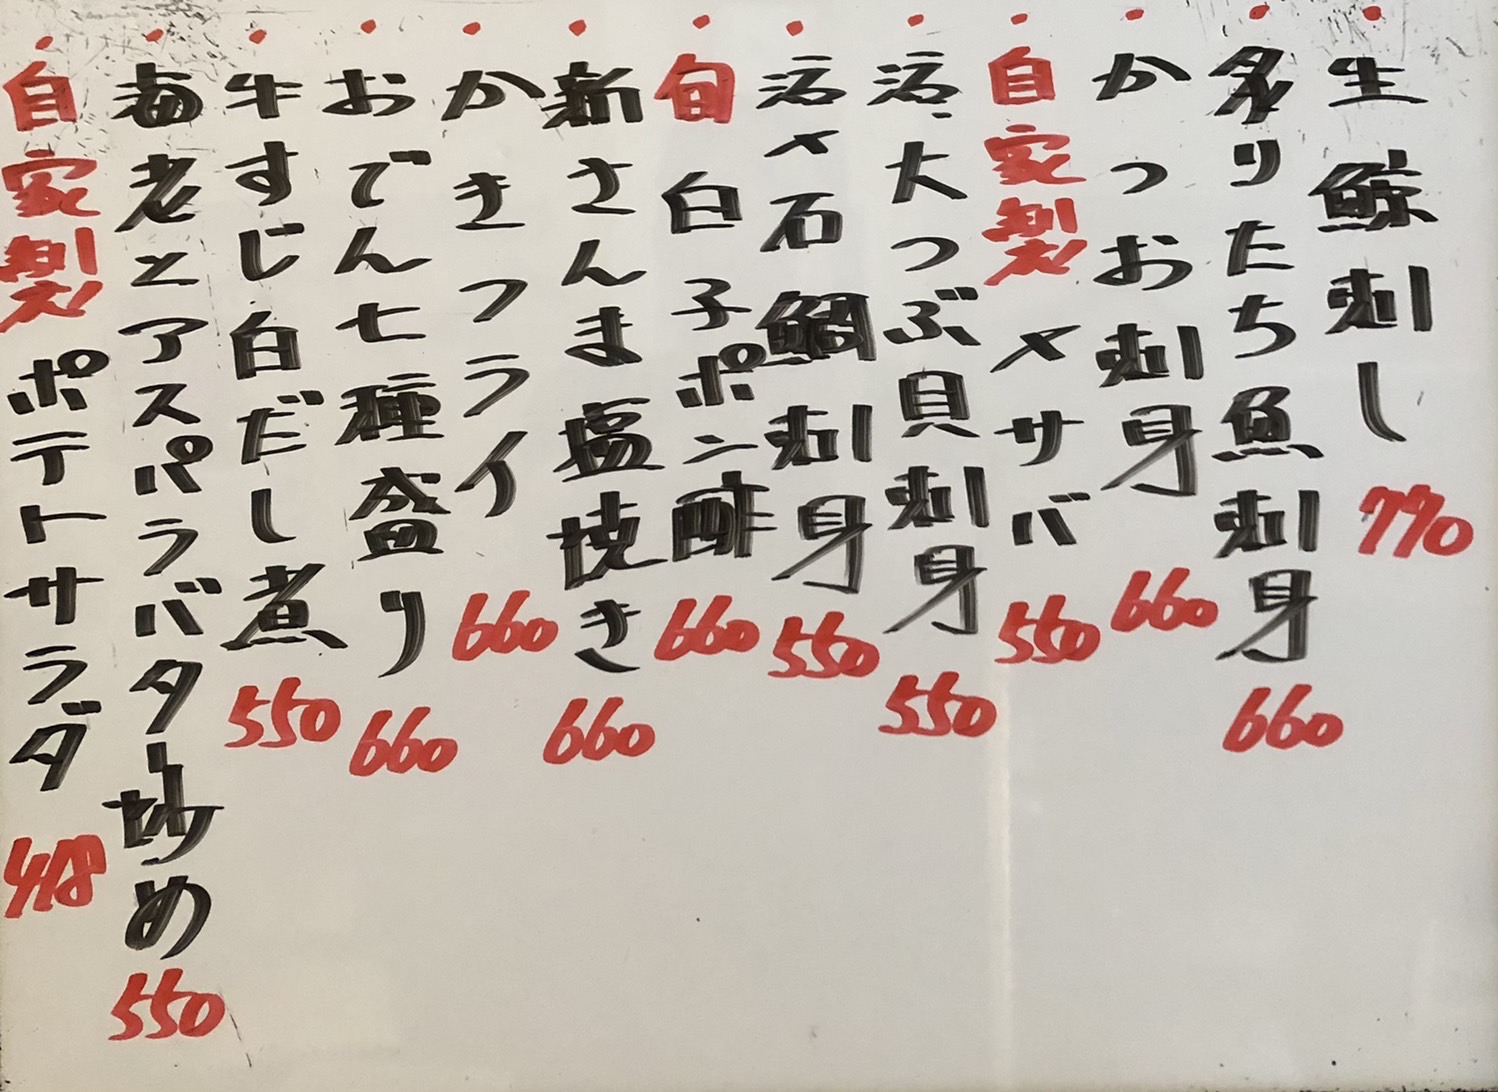 ・生鯨刺し 770
・炙りたち魚刺身 660
・かつお刺身 660
・自家製〆サバ 550
・活、大つぶ貝刺身 550
・活〆石鯛刺身 550
・旬白子ポン酢 660
・新さんま塩焼き 660
・かきフライ 660
・おでん七種盛り 660
・牛すじ白だし煮 550
・海老とアスパラバター炒め 550
・自家製ポテトサラダ 418